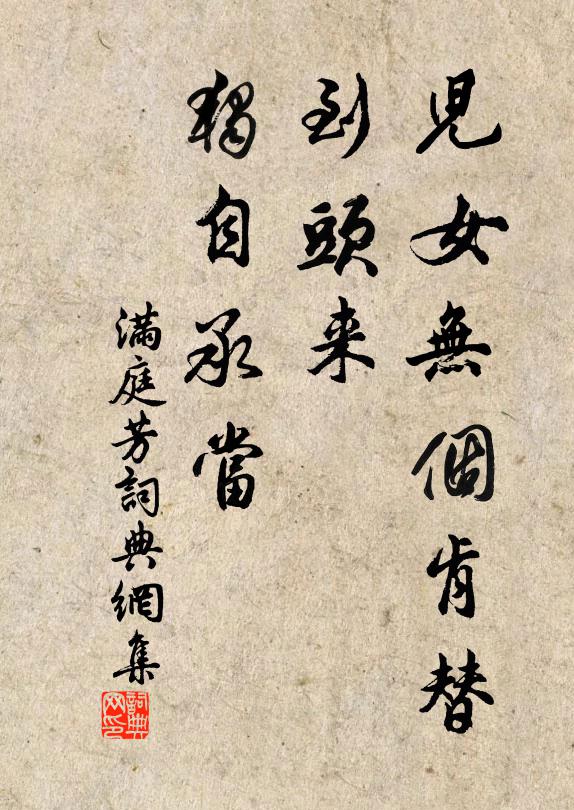 兒女無個肯替
到頭来
獨自承當
滿庭芳詞典網集
詞典
网印